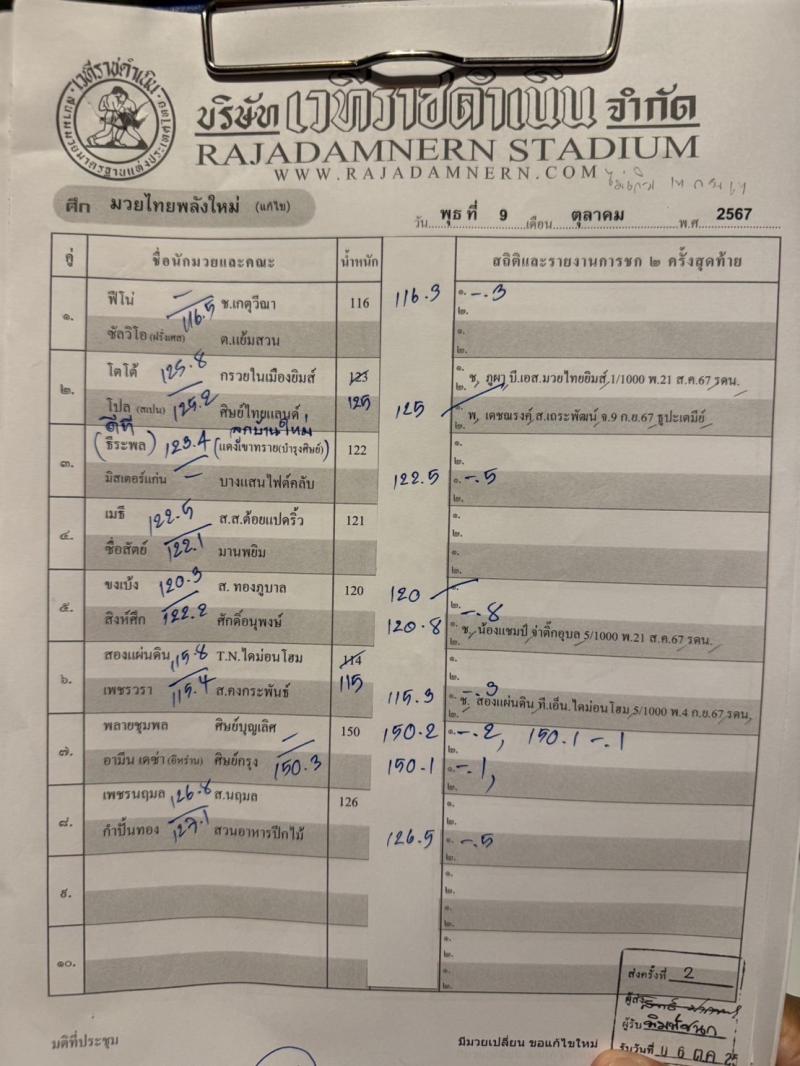 บริษัท เวทีราชดำเนิน จำกัด
RAJADAMNERN STADIUM
WWW.RAJADAMNERN.COM
ศึก มวยไทยพลังใหม่ (แก้ไข)
วัน พุธ ที่ 9 เดือน ตุลาคม พ.ศ. 2567
คู่ ชื่อนักมวยและคณะ น้ำหนัก สถิติและรายงานการชก ๒ ครั้งสุดท้าย
๑. ฟีโน่ — ช.เกตุวีณา 116 116.3 ๑. -.3
๒.
116.5
ซัลวิโอ (ฝรั่งเศส) ต.แย้มสวน ๑.
๒.
๒. โตโต้ 125.8 กรวยในเมืองยิมส์ 123 ๑.
๒. ช, ภูผา บี.เอส.มวยไทยยิมส์,1/1000 พ.21 ส.ค.67 รดน.
โปล (สเปน) 125.2 ศิษย์ไทยแลนด์ 125 125 ๑. พ, เดชณรงค์, ส.เถระพัฒน์ จ.9 ก.ย.67 ธูปะเตมีย์
๒.
ดีที ลูกบ้านใหม่
๓. (ธีระพล) 123.4 (แดงเขาทราย(บำรุงศิษย์)) 122 ๑.
๒.
มิสเตอร์แก่น — บางแสนไฟต์คลับ 122.5 ๑. -.5
๒.
๔. เมธี 122.5 ส.ส.ต้อยแปดริ้ว 121 ๑.
๒.
ซื่อสัตย์ 122.1 มานพยิม ๑.
๒.
๕. ขงเบ้ง 120.3 ส. ทองภูบาล 120 120 ๑.
๒.
สิงห์ศึก 122.2 ศักดิ์อนุพงษ์ 120.8 -.8
๑. ช, น้องแชมป์ จ่าติ๊กอุบล 5/1000 พ.21 ส.ค.67 รดน.
๒.
๖. สองแผ่นดิน 115.8 T.N.ไดม่อนโฮม 114 ๑.
๒.
115
เพชรวรา 115.4 ส.คงกระพันธ์ 115.3 -.3
๑. ช. สองแผ่นดิน ที.เอ็น.ไดม่อนโฮม,5/1000 พ.4 ก.ย.67 รดน,
๒.
๗. พลายชุมพล ศิษย์บุญเลิศ — 150 150.2 ๑. -.2, 150.1 -.1
๒.
อามีน เดซ่า (อิหร่าน) ศิษย์กรุง 150.3 150.1 ๑. -.1,
๒.
๘. เพชรนฤมล 126.8 ส.นฤมล 126 ๑.
๒.
กำปั้นทอง 127.1 สวนอาหารปีกไม้ 126.5 ๑. -.5
๒.
๙. ๑.
๒.
๑.
๒.
๑๐. ๑.
๒.
๑.
๒.
ส่งครั้งที่ 2
ผู้ส่ง
ผู้รับ พิมพ์ชนก
รับวันที่ 0 6 ต.ค. 25
มติที่ประชุม
มีมวยเปลี่ยน ขอแก้ไขใหม่